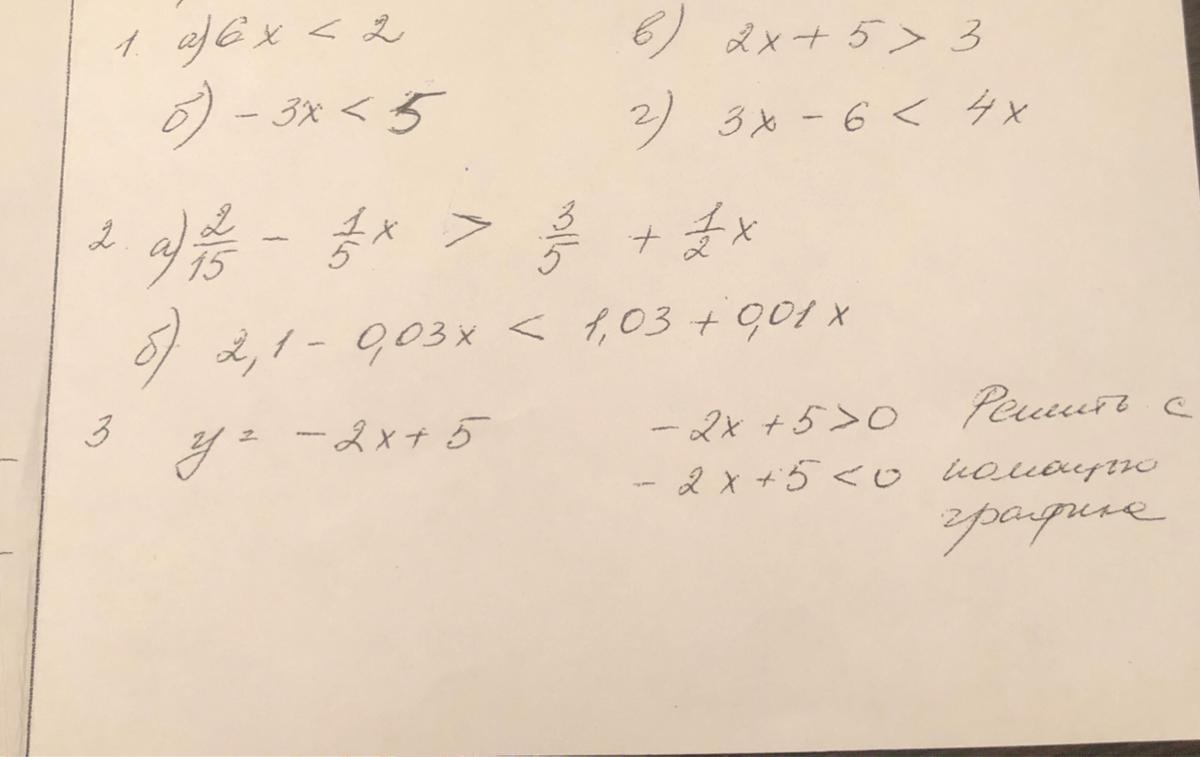 1. а) 6x < 2 в) 2x + 5 > 3
б) - 3x < 5 г) 3x - 6 < 4x
2. а) 2/15 - 1/5 x > 3/5 + 1/2 x
б) 2,1 - 0,03x < 1,03 + 0,01x
3 y = - 2x + 5 - 2x + 5 > 0 Решить с
- 2x + 5 < 0 помощью
графика